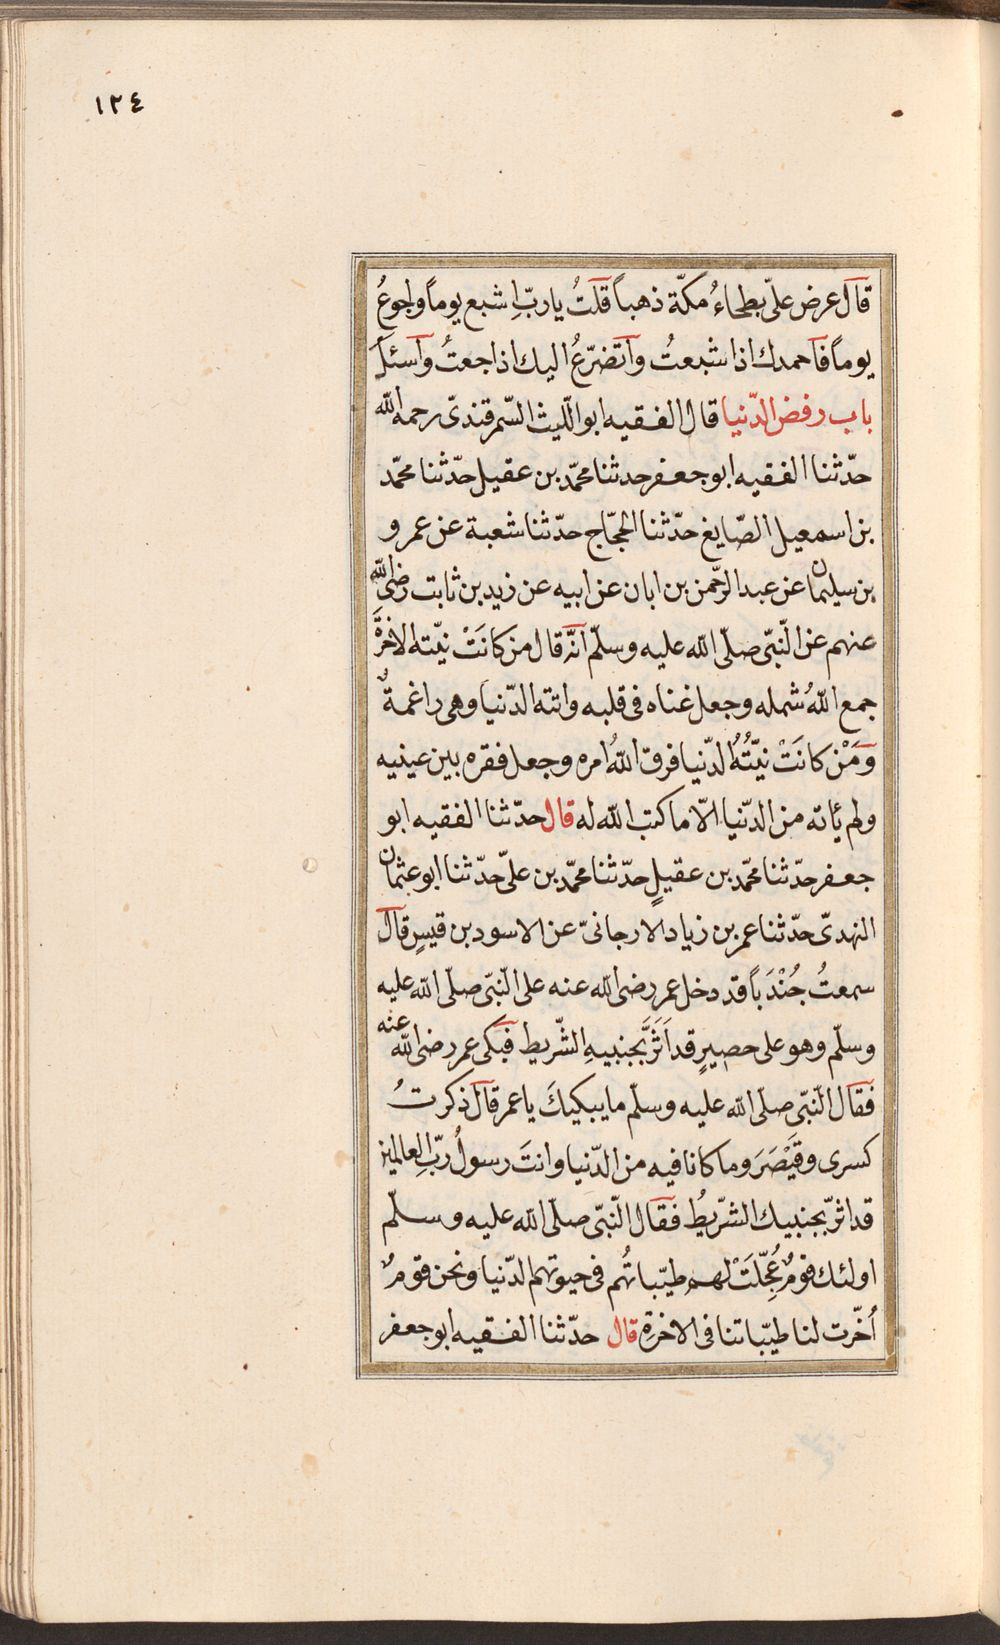 ١٢٤
قال عرض علىّ بطحاءُ مكّة ذهباً قلتُ يا ربّ اِشبع يوماً واجوعُ
يوماً فاحمدك اذا شبعتُ واتضرّعُ اليك اذا جعتُ واسئلَ
باب رفض الدّنيا قال الفقيه ابو اللّيث السّمرقندىّ رحمه اللّه
حدّثنا الفقيه ابو جعفر حدثنا محمّد بن عقيل حدّثنا محمّد
بن اسمعيل الصّايغ حدّثنا الحجّاج حدّثنا شعبة عن عمر و
بن سليمان عن عبد الرّحمن بن ابان عن ابيه عن زيد بن ثابت رضى اللّه
عنهم عن النّبّى صلّى اللّه عليه وسلّم انّه قال من كانَتْ نيّته الاخرةَ
جمع اللّهُ شمله وجعل غناه فى قلبه واتته الدّنيا وهى راغمةٌ
ومَنْ كانَتْ نيّتُهُ الدّنيا فرق اللّهُ امره وجعل فقره بين عينيه
ولم ئاته من الدّنيا الّا ما كتب اللّه له قال حدّثنا الفقيه ابو
جعفر حدّثنا محمّد بن عقيلٍ حدّثنا محمّد بن علىّ حدّثنا ابو عثمان
النهدىّ حدّثنا عمر بن زياد الارجانىّ عن الاسود بن قيسٍ قال
سمعتُ جُنْدَباً قد دخل عمر رضى اللّه عنه على النّبّى صلّى اللّه عليه
وسلّم وهو على حصيرٍ قد اَثَرَّ بجنبيهِ الشّريط فبكى عمر رضى اللّه عنه
فقال النّبّى صلّى اللّه عليه وسلّم ما يبكيكَ يا عمر قال ذكرتُ
كسرى وقَيْصَرَ وما كانا فيه من الدّنيا وانتَ رسولُ ربّ العالمين
قد اثرّ بجنبيك الشّريطُ فقال النّبّى صلّى اللّه عليه وسلّم
اولئك قومٌ عُجِّلَتْ لهم طيّباتُهم فى حيوتهم الدّنيا ونحن قومٌ
اُخّرت لنا طيّباتنا فى الاخرة قال حدّثنا الفقيه ابو جعفر